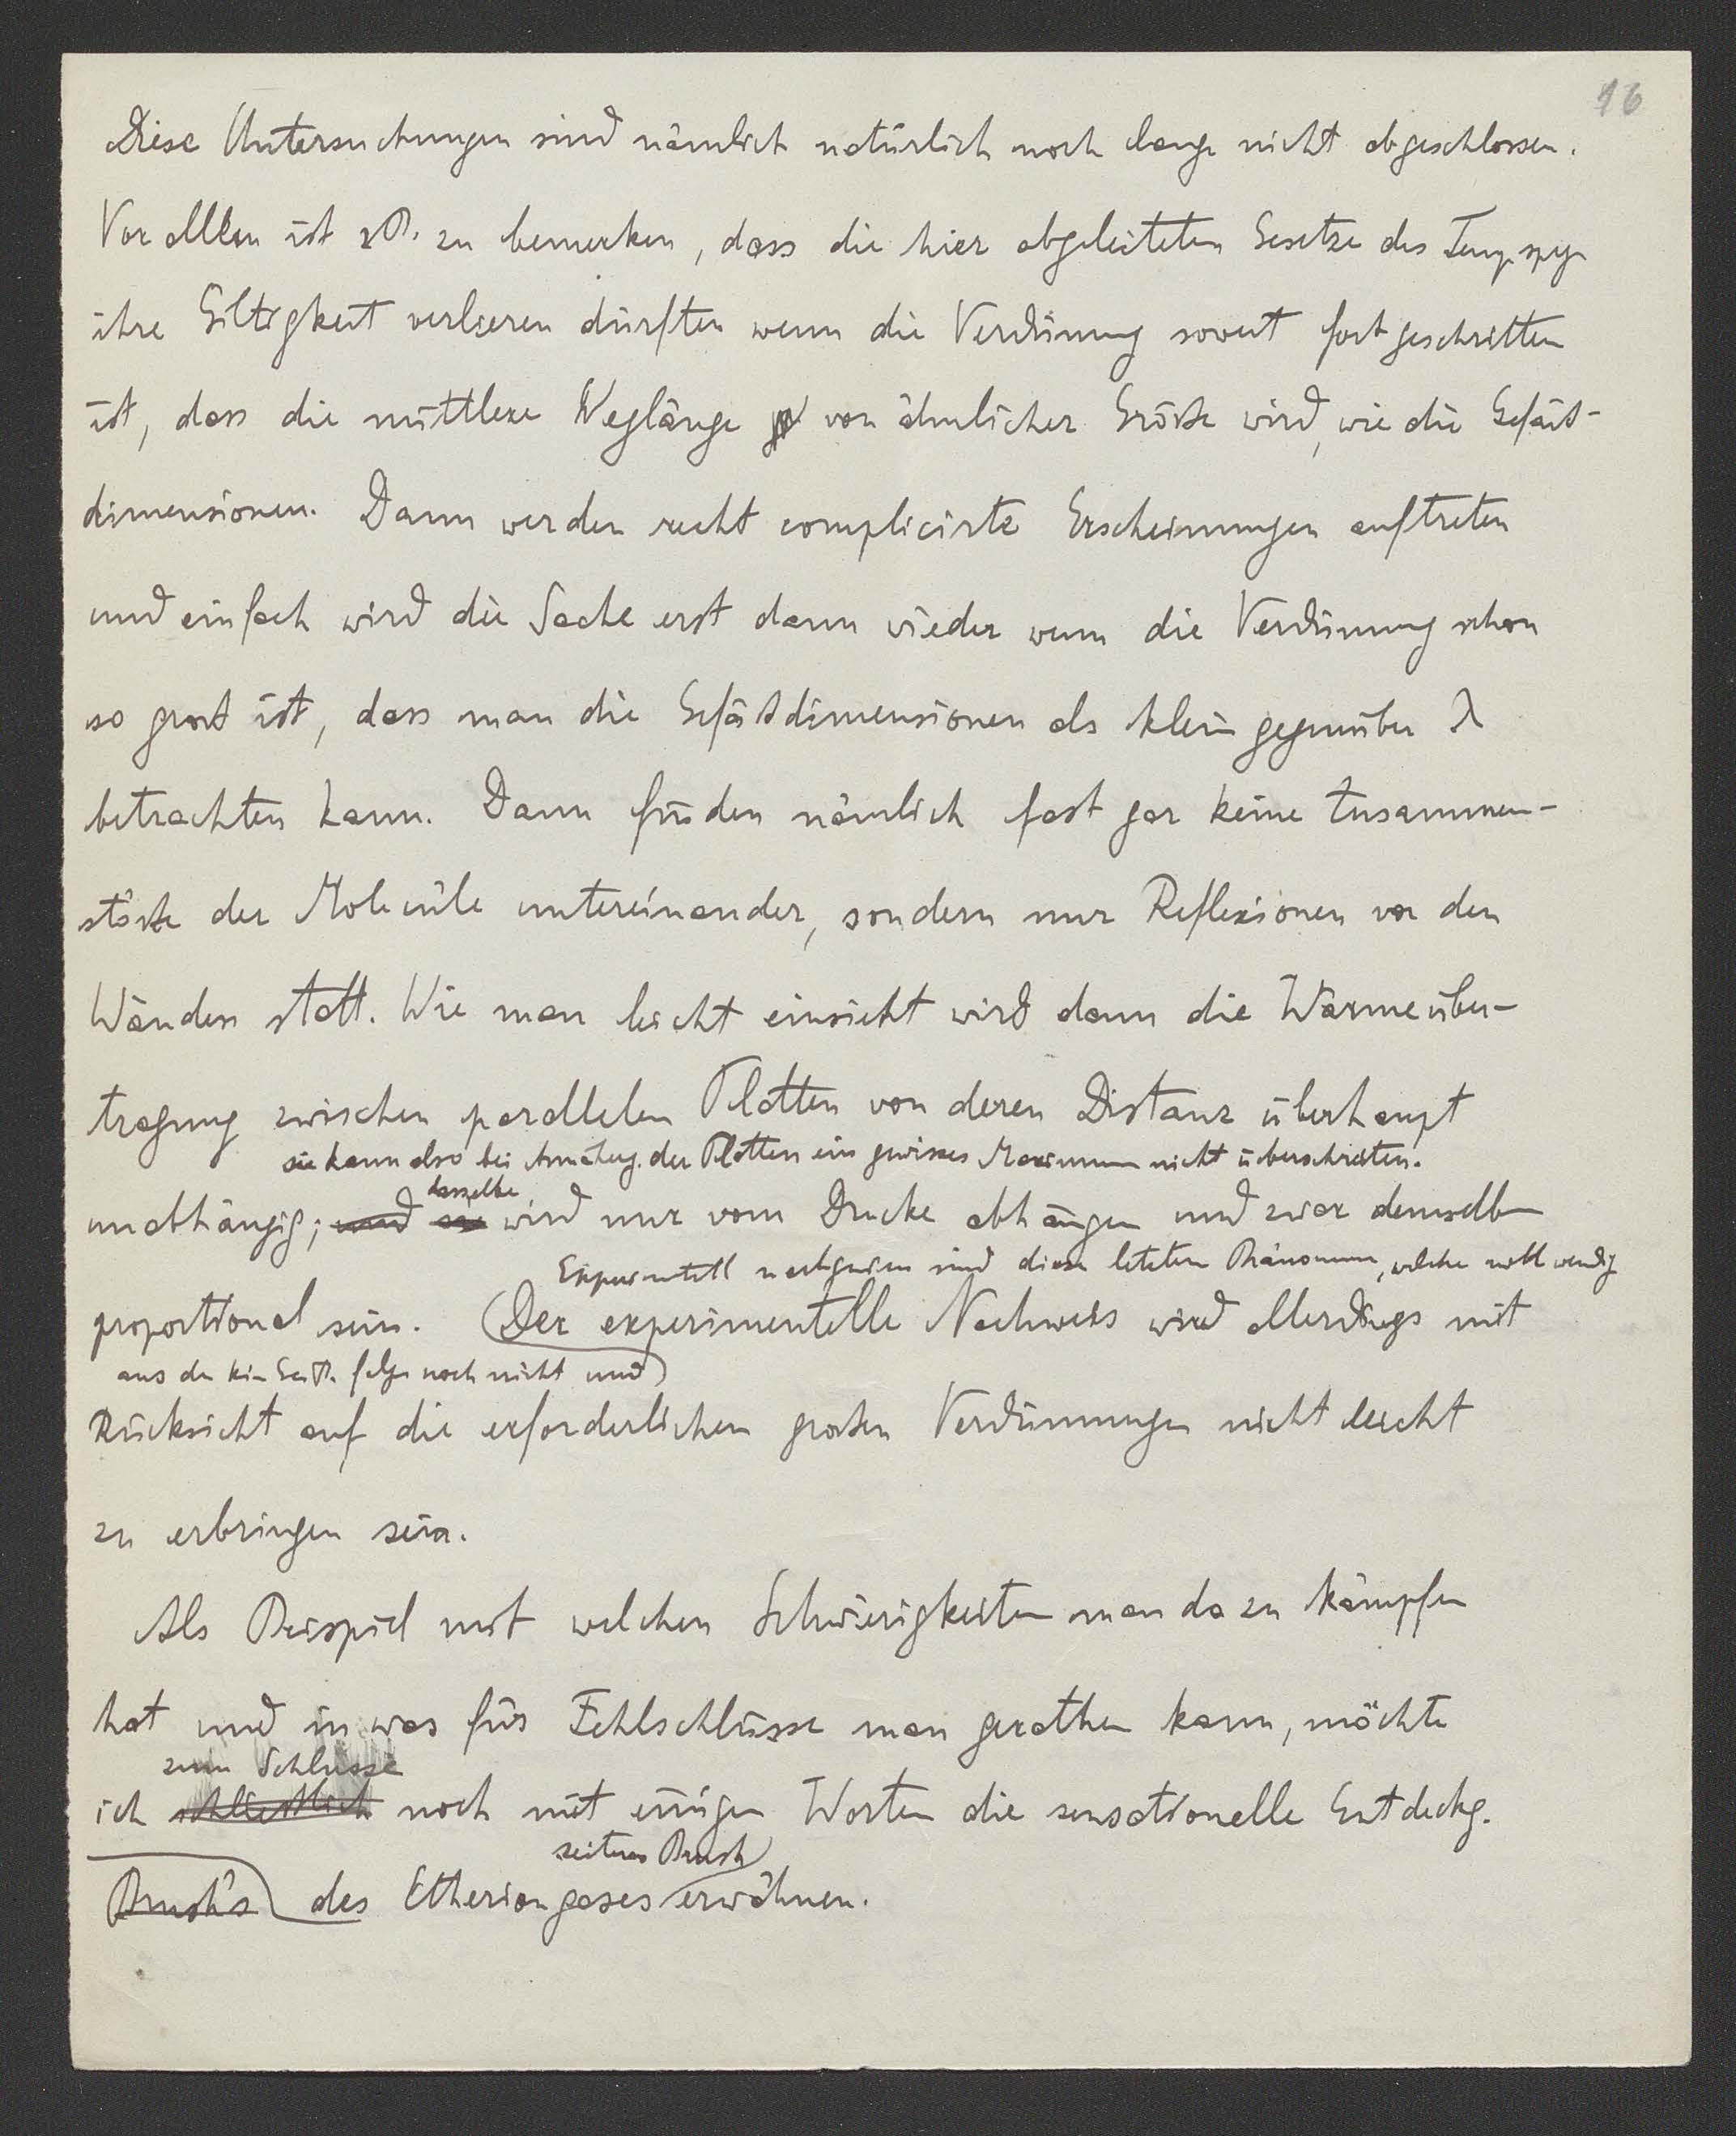 16
Diese Untersuchungen sind nämlich natürlich noch lange nicht abgeschlossen.
Vor allem ist z.B. zu bemerken, dass die hier abgeleiteten Gesetze des Temp. spg.
ihre Giltigkeit verlieren dürften wenn die Verdünnung soweit fortgeschritten
ist, dass die mittlere Weglänge von ähnlicher Größe wird, wie die Gefäß-
dimensionen. Dann werden recht complicirte Erscheinungen auftreten
und einfach wird die Sache erst dann wieder wenn die Verdünnung schon
so groß ist, dass man die Gefäßdimensionen als klein gegenüber λ
betrachten kann. Dann finden nämlich fast gar keine Zusammen-
stöße der Moleküle untereinander, sondern nur Reflexionen von den
Wänden statt. Wie man leicht einsieht wird dann die Wärmeüber-
tragung zwischen parallelen Platten von deren Distanz überhaupt
sie kann also bei Annäherg. der Platten ein gewisses Maximum nicht überschreiten.
dasselbe
unabhängig; und sie wird nur vom Drucke abhängen und zwar demselben
Experimentell nachgewiesen sind diese letzten Phänomene, welche nothwendig
proportional sein. Der experimentelle Nachweis wird allerdings mit
aus der kin. Gasth. folgen noch nicht und
Rücksicht auf die erforderlichen großen Verdünnungen nicht leicht
zu erbringen sein.
Als Beispiel mit welchen Schwierigkeiten man da zu kämpfen
hat und in was für Fehlschlüsse man gerathen kann, möchte
zum Schlusse
ich schließlich noch mit einigen Worten die sensationelle Entdeckg.
seitens Brush
Brush's des Etheriongases erwähnen.